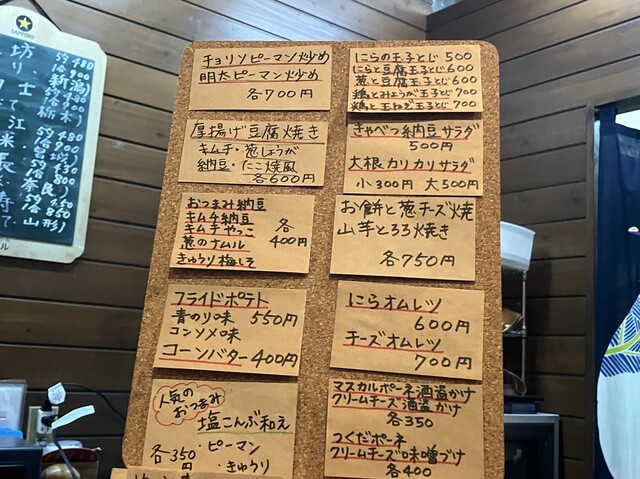 チョリソピーマン炒め
明太ピーマン炒め
各700円
にらの玉子とじ 500
にらと豆腐玉子とじ 600
葱と豆腐玉子とじ 600
鶏とみょうが玉子とじ 700
鶏と玉ねぎ玉子とじ 700
厚揚げ豆腐焼き
キムチ・葱しょうが
納豆・たこ焼風
各600円
きゃべつ納豆サラダ
500円
大根カリカリサラダ
小300円 大500円
おつまみ納豆
キムチ納豆
キムチやっこ
葱のナムル
きゅうり梅しそ
各
400円
お餅と葱チーズ焼
山芋とろろ焼き
各750円
フライドポテト
青のり味 550円
コンソメ味
コーンバター 400円
にらオムレツ
600円
チーズオムレツ
700円
人気の
おつまみ
塩こんぶ和え
各350円
・ピーマン
・きゅうり
マスカルポーネ酒盗かけ
クリームチーズ酒盗かけ
各350
つくだポーネ
クリームチーズ味噌づけ
各400
SAPPORO